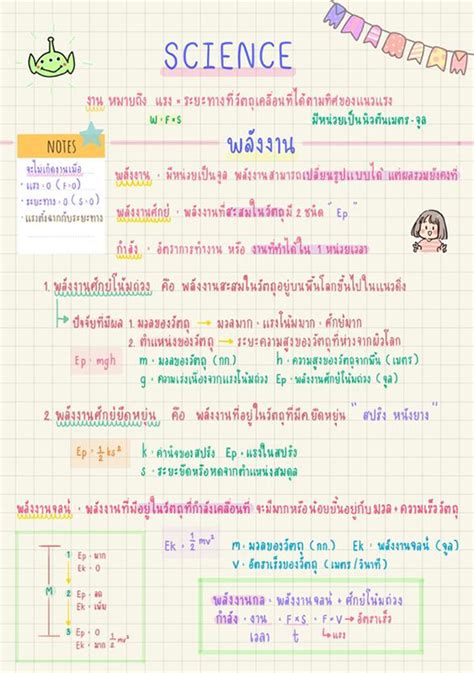 SCIENCE
งาน หมายถึง แรง × ระยะทางที่วัตถุเคลื่อนที่ได้ตามทิศของแนวแรง
W = F × S มีหน่วยเป็นนิวตันเมตร = จูล
NOTES
จะไม่เกิดงานเมื่อ
• แรง = 0 (F = 0)
• ระยะทาง = 0 (S = 0)
• แรงตั้งฉากกับระยะทาง
พลังงาน
พลังงาน • มีหน่วยเป็นจูล พลังงานสามารถเปลี่ยนรูปแบบได้ แต่ผลรวมยังคงที่
พลังงานศักย์ • พลังงานที่สะสมในวัตถุมี 2 ชนิด " Ep "
กำลัง • อัตราการทำงาน หรือ งานที่ทำได้ใน 1 หน่วยเวลา
1. พลังงานศักย์โน้มถ่วง คือ พลังงานสะสมในวัตถุอยู่บนพื้นโลกขึ้นไปในแนวดิ่ง
ปัจจัยที่มีผล 1. มวลของวัตถุ → มวลมาก • แรงโน้มมาก • ศักย์มาก
2. ตำแหน่งของวัตถุ → ระยะความสูงของวัตถุที่ห่างจากผิวโลก
Ep = mgh m = มวลของวัตถุ (กก.) h = ความสูงของวัตถุจากพื้น (เมตร)
g = ความเร่งเนื่องจากแรงโน้มถ่วง Ep = พลังงานศักย์โน้มถ่วง (จูล)
2. พลังงานศักย์ยืดหยุ่น คือ พลังงานที่อยู่ในวัตถุที่มีค.ยืดหยุ่น " สปริง หนังยาง "
Ep = 1/2 ks² k = ค่านิจของสปริง Ep = แรงในสปริง
s = ระยะยืดหรือหดจากตำแหน่งสมดุล
พลังงานจลน์ • พลังงานที่มีอยู่ในวัตถุที่กำลังเคลื่อนที่ จะมีมากหรือน้อยขึ้นอยู่กับ มวล + ความเร็ววัตถุ
Ek = 1/2 mv² m = มวลของวัตถุ (กก.) Ek = พลังงานจลน์ (จูล)
V = อัตราเร็วของวัตถุ (เมตร/วินาที)
M
1 Ep = มาก
Ek = 0
2 Ep = ลด
Ek = เพิ่ม
3 Ep = 0
Ek = มาก 1/2 mv²
พลังงานกล • พลังงานจลน์ + ศักย์โน้มถ่วง
กำลัง = งาน = F × S = F × V → อัตราเร็ว
เวลา t แรง